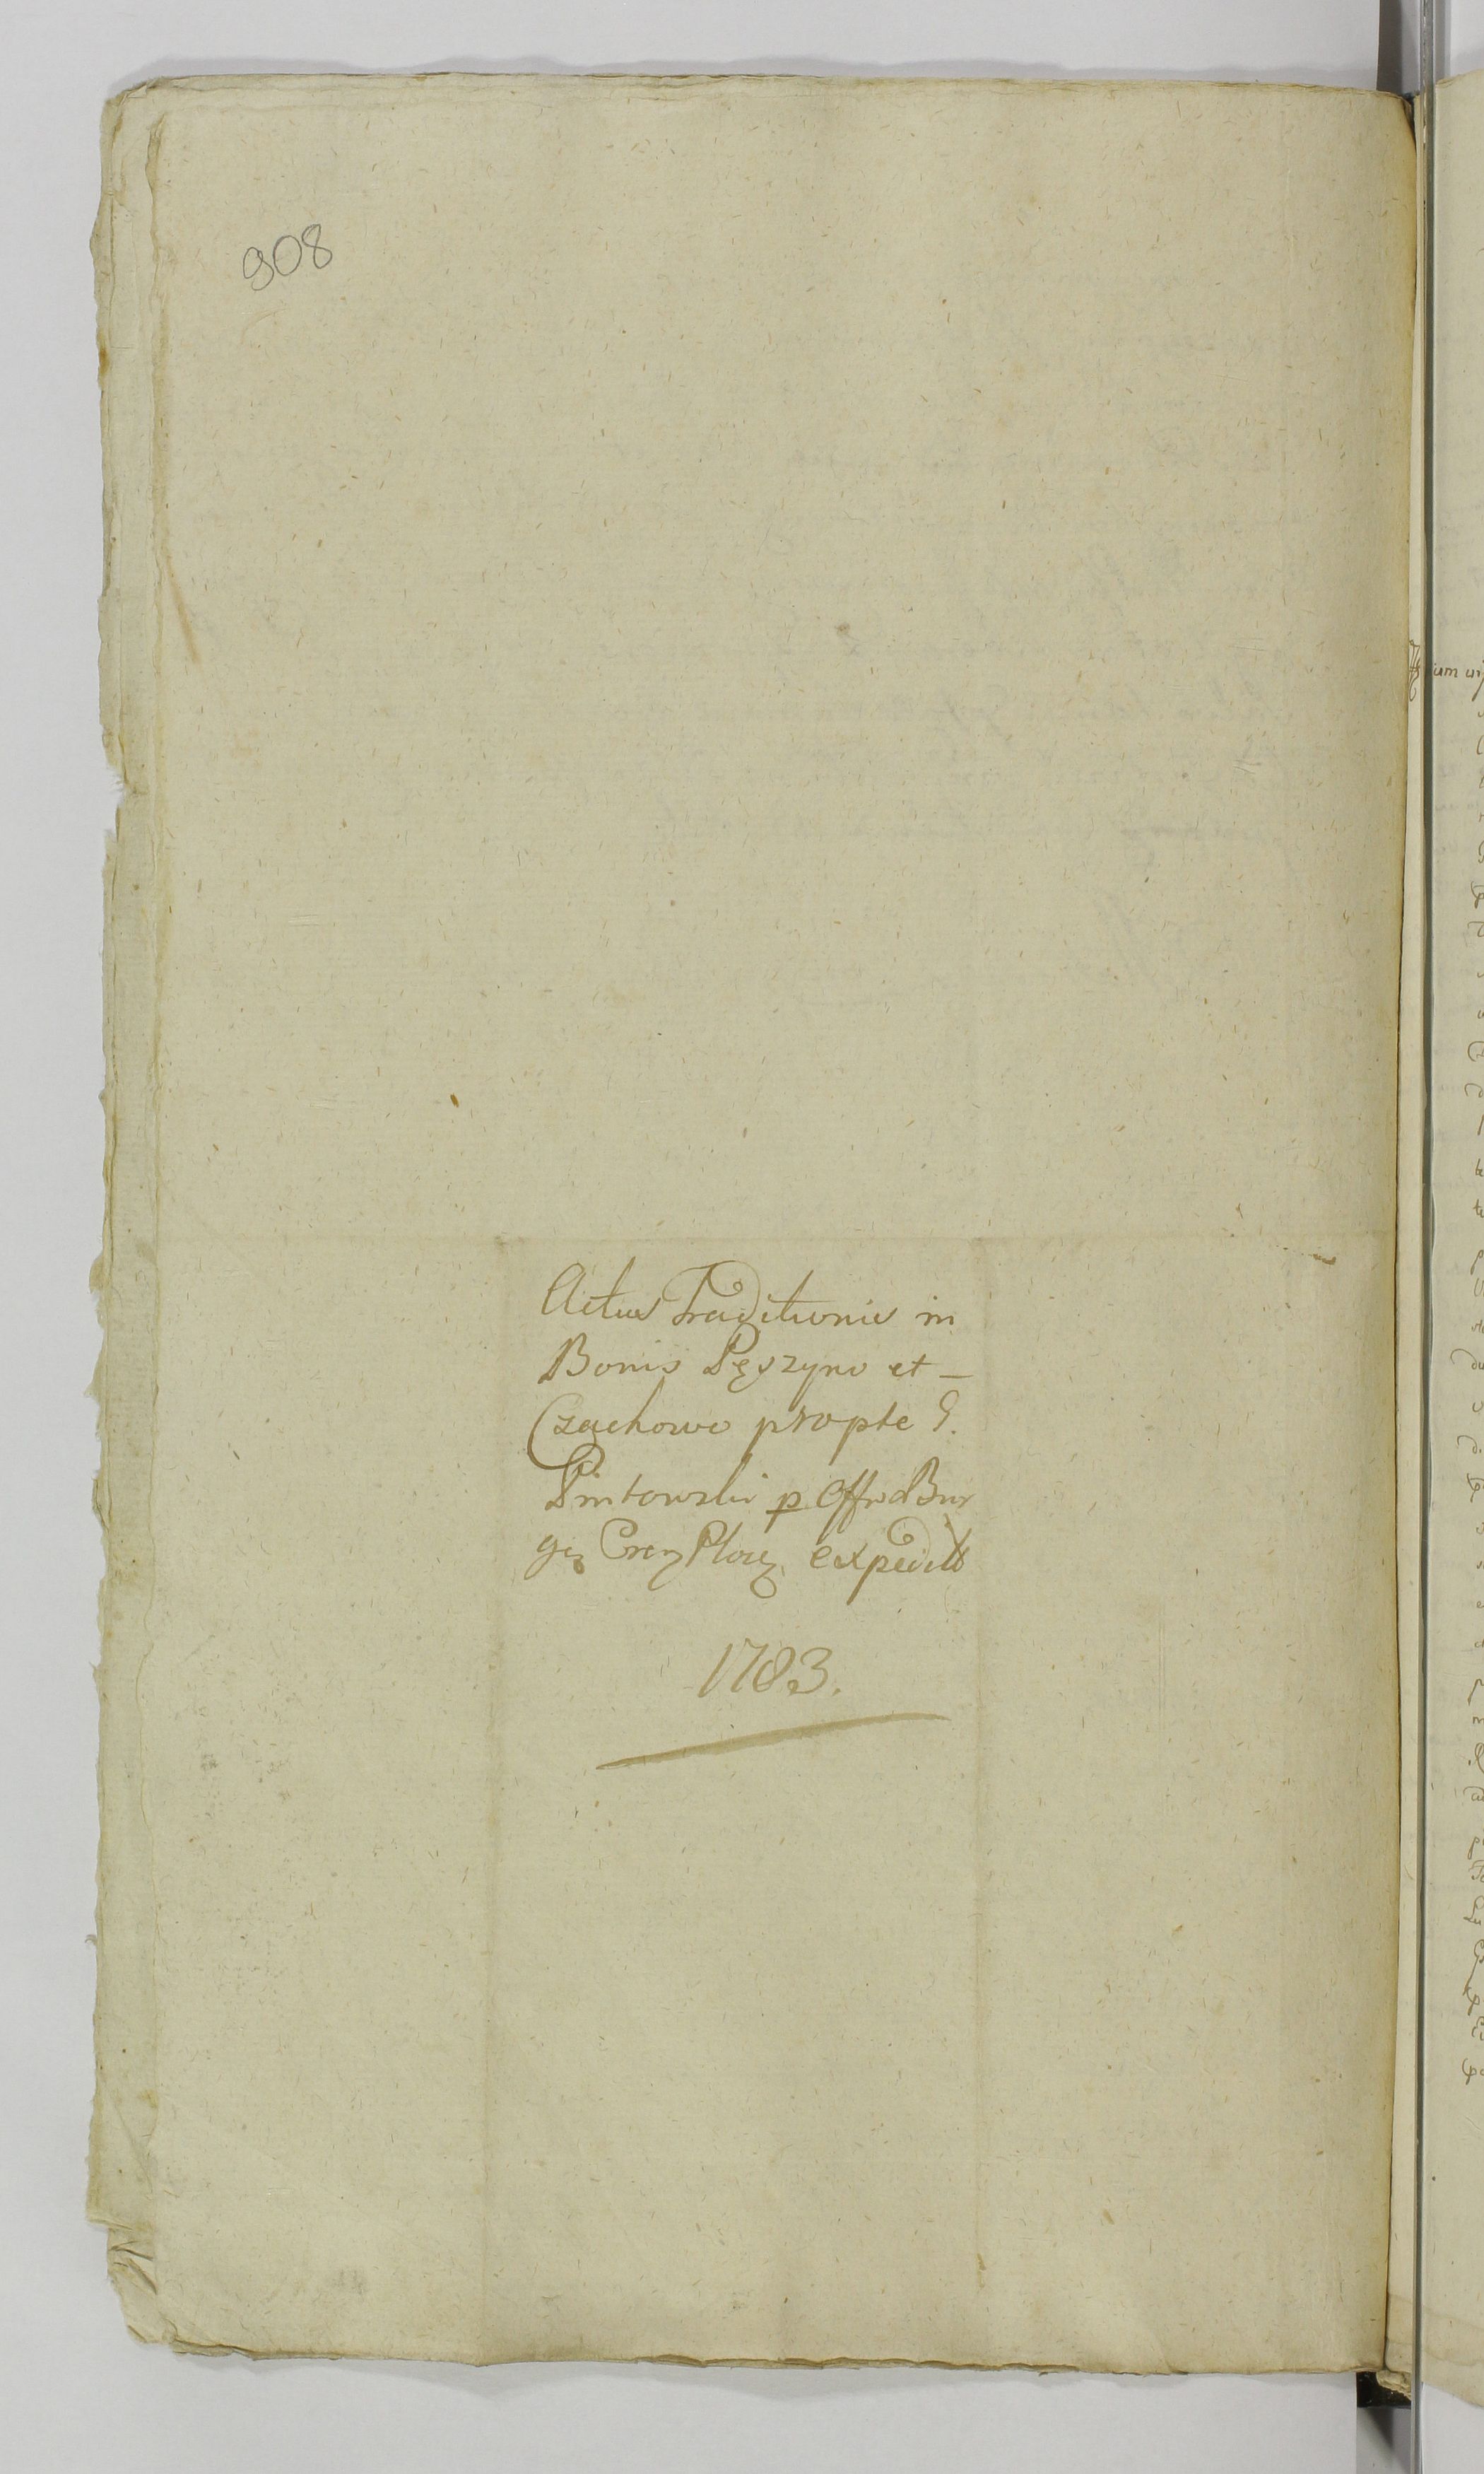 908
Actus Traditionis in
Bonis Pęszyno et –
Czachowo propte G.
Pintowski p Offıd Bur
Cren Ploc expedit
1783.